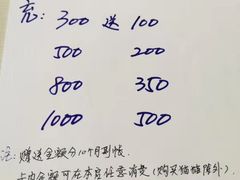 充: 300 送 100
500 200
800 350
1000 500
注: 赠送金额分10个月到帐.
卡内金额可在本店任意消费(购买猫猫除外)